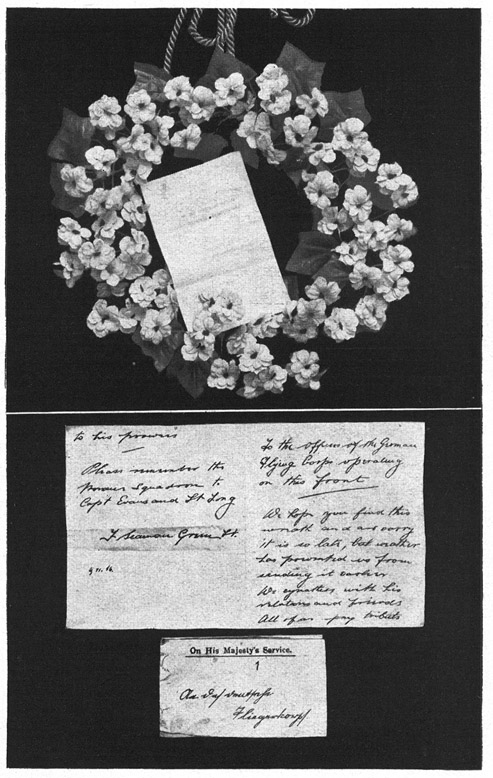 To the Officers of the German
Flying Corps operating
on this front
We hope you find this
wreath and are sorry
it is so late, but weather
has prevented us from
sending it earlier
We sympathise with his
relations and friends
All of us pay tribute
to his prowess
Please remember the
Squadron to
Capt Evans and Lt Long
T. Seaman Green Lt.
On His Majesty's Service.
1
An das deutsche
Fliegerkorps